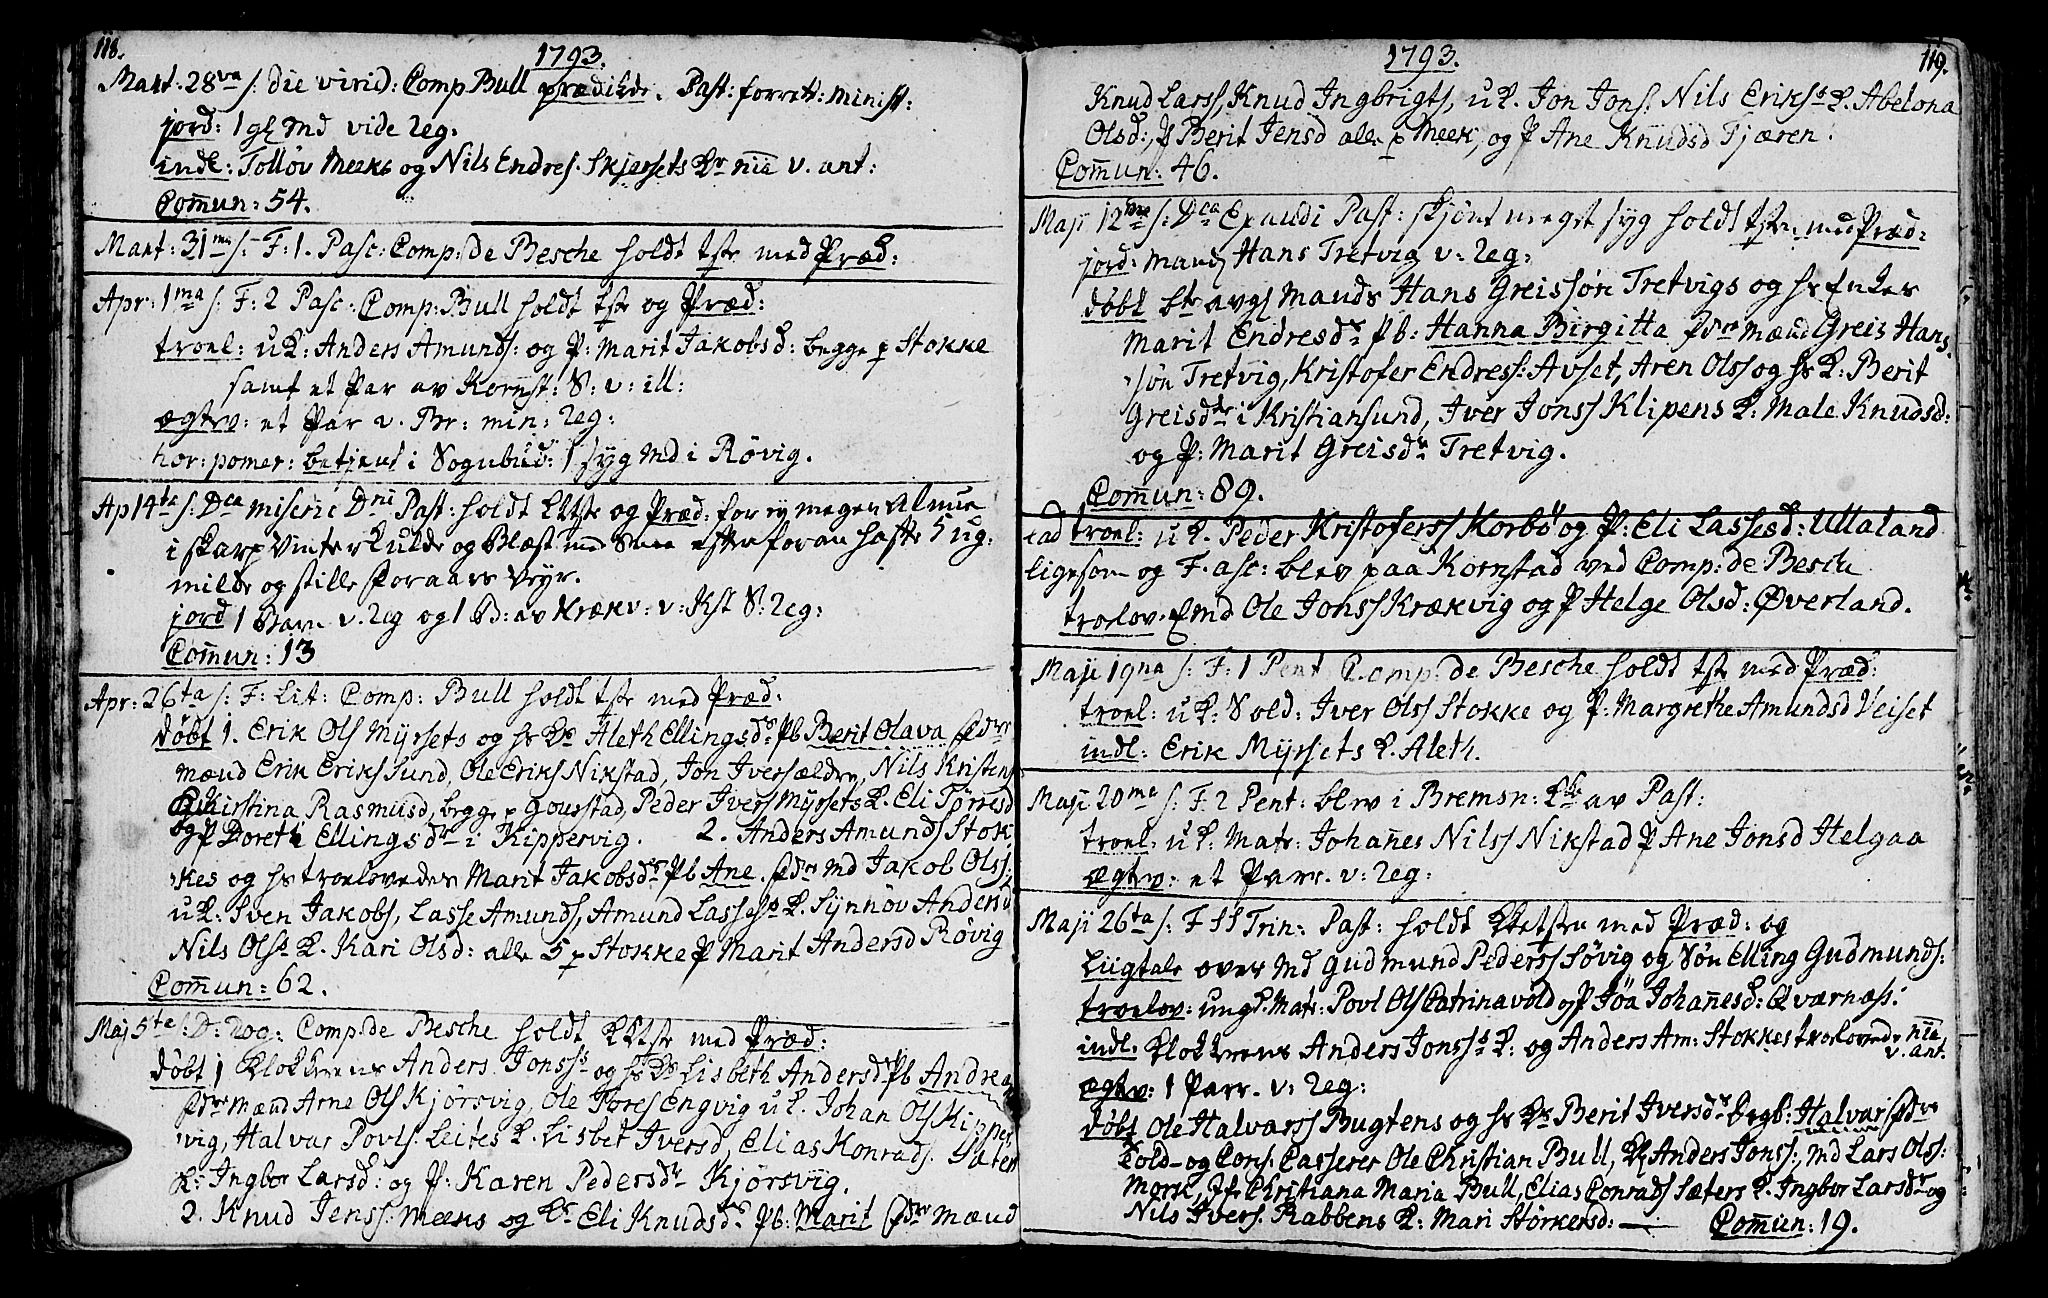 118.
1793.
Mart. 28va s: die virid: Comp Bull prædikde. Past: forrett: minist:
jord: 1 gl Md vide Reg:
indl: Tolløv Meeks og Nils Endres. Skjersets Kr nia v. ant:
Comun: 54.
Mart: 31ma s: F: 1. Pasc: Comp: de Besche holdt tste med Præd:
Apr: 1ma s: F: 2 Pasc: Comp: Bull holdt tste og Præd:
troel: uK: Anders Amunds: og P: Marit Jakobsd: begge p Stokke
samt et Par av Kornst: S: v: ill:
ægtv: et Par v. Br: min: Reg:
hor: pomer: betjent i Sognebud: 1 syg Md i Røvig.
Ap 14ta s: Dca miseric Dni Past: holdt Ktste og Præd: for ej megen Almue
i skarp Vinter Kulde og Blæst med Snee efter foran hafte 5 ug:
milde og stille Foraars Veyr.
jord 1 Barn v. Reg og 1 B: av Krækv: v: Kst S: Reg:
Comun: 13
Apr: 26ta s: F: Lit: Comp: Bull holdt tste med Præd:
døbt 1. Erik Ols Myrsets og hs Ko Aleth Ellingsdr Pb Berit Olava Fdre
mænd Erik Eriks Sund, Ole Eriks Nikstad, Jon Ivers ældre, Nils Kristens
Kirstina Rasmusd, begge p Gourstad, Peder Ivers Myrsets K. Eli Tørresd
og P Doreth Ellingsdr i Kippervig. 2. Anders Amunds Stok
kes og hs troelovedes Marit Jakobsdr Pb Ane. Fdre Md Jakob Olss:
uK: Sven Jakobs, Lasse Amunds, Amund Lasses K. Synnøv Andersd
Nils Ols K. Kari Olsd: alle 5 p Stokke P Marit Andersd Røvig
Comun: 62.
Maj 5ta s: D: rog: Comp: de Besche holdt Ktste med Præd:
døbt 1 Klokkerens Anders Jonss og hs Ko Lisbeth Andersdr Pb Andrea
Fdre mænd Arne Ols Kjørsvig, Ole Tores Engvig uK. Johan Ols Kipper
vig, Halvar Povls: Leites K. Lisbet Iversd, Elias Konrads: Sæters
K: Ingbor Larsd: og P: Karen Pedersdr Kjørsvig.
2. Knud Jenss: Meeks og Kr Eli Knudsdr Pb: Marit Fdre mænd
1793.
119.
Knud Larss, Knud Ingbrigts, uK. Jon Jons: Nils Eriks K. Abelona
Olsd: P Berit Jensd alle p Meek, og P Ane Knudsd Fjæren.
Comun: 46.
Maji 12ma s: Dca Exaudi Past: skjønt meget syg holdt tste med Præd:
jord: Mand Hans Tretvig v: Reg:
døbt bte avg Mands Hans Greissøn Tretvigs og hs Enkes
Marit Endresdr Pb: Hanna Birgitta Fdre mænd Greis Hans
søn Tretvig, Kristofer Endress: Avset, Aren Olss og hs K: Berit
Greisdr i Kristiansund, Iver Jonss Klipens K: Male Knudsd:
og P: Marit Greisdr Tretvig.
Comun: 89.
ead troel: uK. Peder Kristoferss Korbø og P: Eli Lassesd: Ullaland
ligesom og F. asc: blev paa Kornstad ved Comp: de Besch
troelov. Emd Ole Jonss Krækvig og P Helge Olsd: Øverland.
Maji 19na s: F: 1 Pent Comp: de Besche holdt tste med Præd:
troel: uK: Sold: Iver Olss Stokke og P: Margrethe Amundsd Veiset
indl: Erik Myrsets K. Aleth.
Maji 20ma s: F: 2 Pent: blev i Bremsn: Kke av Past:
troel: uK: Matr: Johanes Nilss Nikstad P Ane Jonsd Helgaa
ægtv: et Parr. v: Reg:
Maji 26ta s: F SS Trin: Past: holdt Ktsten med Præd: og
Liigtale over Md Gudmund Pederss Søvig og Søn Elling Gudmunds:
troelov: ungk Matr: Povl Ols Catrinavold og P Jøa Johanesd: Qværnæss:
indl: Klokkerens Anders Jonss K: og Anders Am: Stokkes troelovede nia
v. ant.
ægtv: 1 Parr. v: Reg:
døbt Ole Halvarss Bugtens og hs Ko Berit Iversdr Drgb: Halvar Fdre
Told- og Cons: Casserer Ole Christian Bull, Kl Anders Jonss:, Md Lars Olss:
Mork, Jf: Christiana Maria Bull, Elias Conrads Sæters K. Ingbor Larsdr og
Nils Ivers. Rabbens K: Mari Størkersd: — Comun: 19.